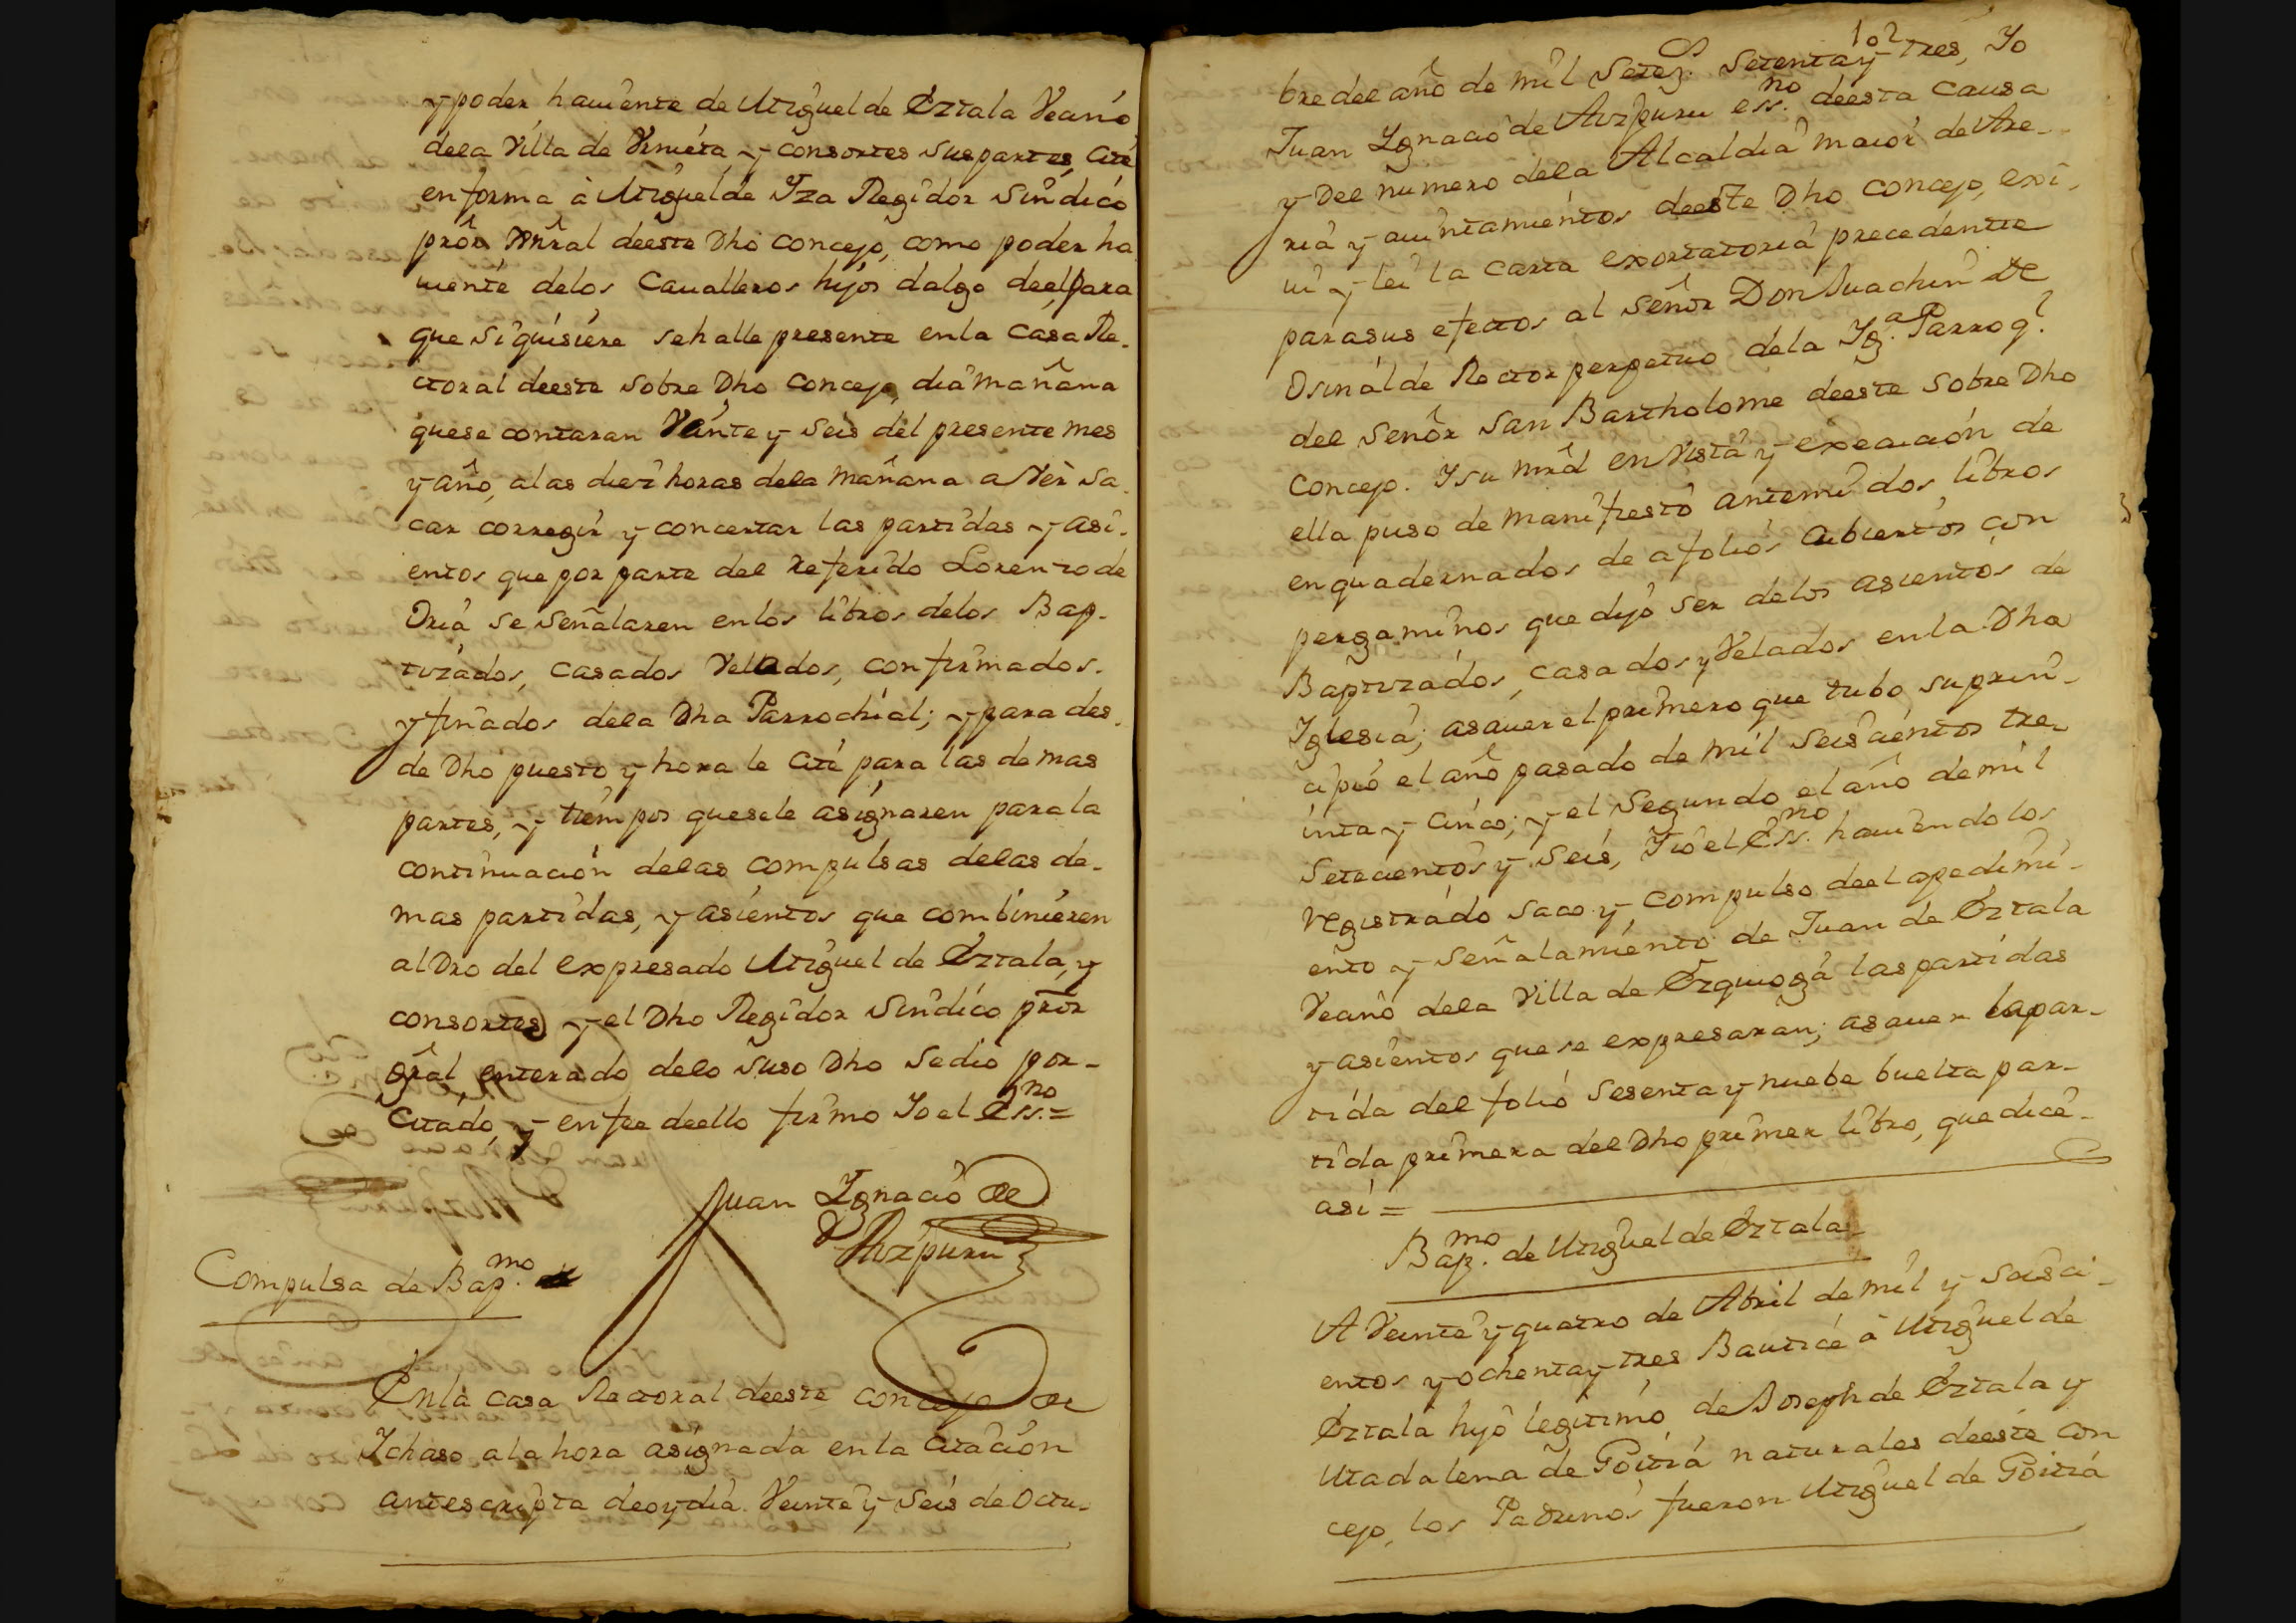 y poder hauiente de Miguel de Eztala Vecino
dela Villa de Vrnieta y consortes sus partes, cité
en forma à Miguel de Yza Regidor Sindico
prôr gñral deeste Dho concejo, como poder ha
uiente delos Caualleros hijos dalgo deel, para
que si quisiere se halle presente en la casa Re-
ctoral deeste sobre Dho concejo, dia mañana
que se contaran Veinte y seis del presente mes
y año, alas diez horas dela mañana a Ver sa-
car corregir y concertar las partidas y asi-
entos que por parte del referido Lorenzo de
Oria se señalaren en los libros delos Bap-
tizados, casados Velados, confirmados
y finados dela Dha Parrochial; y para des-
de Dho puesto y hora le cité para las demas
partes, y tiempos que se le asignaren para la
continuación delas compulsas delas de-
mas partidas, y asientos que combinieren
al Dro del expresado Miguel de Eztala, y
consortes y el Dho Regidor Sindico prôr
grâl enterado delo suso Dho se dio por
citado, y en fee deello firmo Yo el Ess.no=
Juan Ygnacio de
Aizpuru
Compulsa de Bap.mo
En la casa Rectoral deeste concejo de
Ychaso ala hora asignada en la citación
antescripta deoy dia Veinte y seis de Octu-
102
bre del año de mil setez.s setenta y tres, Yo
Juan Ygnacio de Aizpuru ess.no deesta causa
y Del numero dela Alcaldia maior de Are-
ria y auintamientos deeste Dho concejo, exi-
ui y lei la carta exortatoria precedente
para sus efectos al señor Don Juachin de
Osinalde Rector perpetuo dela Yg.a Parroq.l
del señor San Bartholome deeste sobre Dho
concejo. Y su mrd en Vista y execución de
ella puso de manifiesto antemi dos libros
enquadernados de afolios cubiertos con
pergaminos que dijo ser delos asientos de
Baptizados, casados y Velados en la Dha
Yglesia; asauer el primero que tubo su prin-
cipio el año pasado de mil seiscientos tre-
inta y cinco; y el segundo el año de mil
setecientos y seis, Yo el Ess.no hauiendolos
registrado saco y compulso deel apedimi-
ento y señalamiento de Juan de Eztala
Vecino dela Villa de Ezquioga las partidas
y asientos que se expresaran; asauer la par-
tida del folio sesenta y nuebe buelta par-
tida primera del Dho primer libro, que dice
asi =
Bap.mo de Miguel de Eztala
A Veinte y quatro de Abril de mil y seisci-
entos y ochenta y tres Bauticé à Miguel de
Eztala hijo legitimo de Joseph de Eztala y
Madalena de Goitia naturales deeste con
cejo, los Padrinos fueron Miguel de Goitia